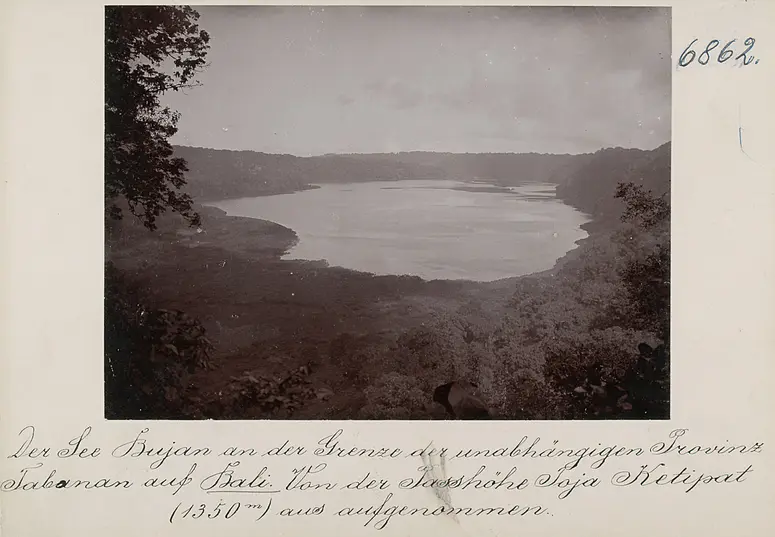 6862.
Der See Bujan an der Grenze der unabhängigen Provinz
Tabanan auf Bali. Von der Passhöhe Toja Ketipat
(1350 m) aus aufgenommen.